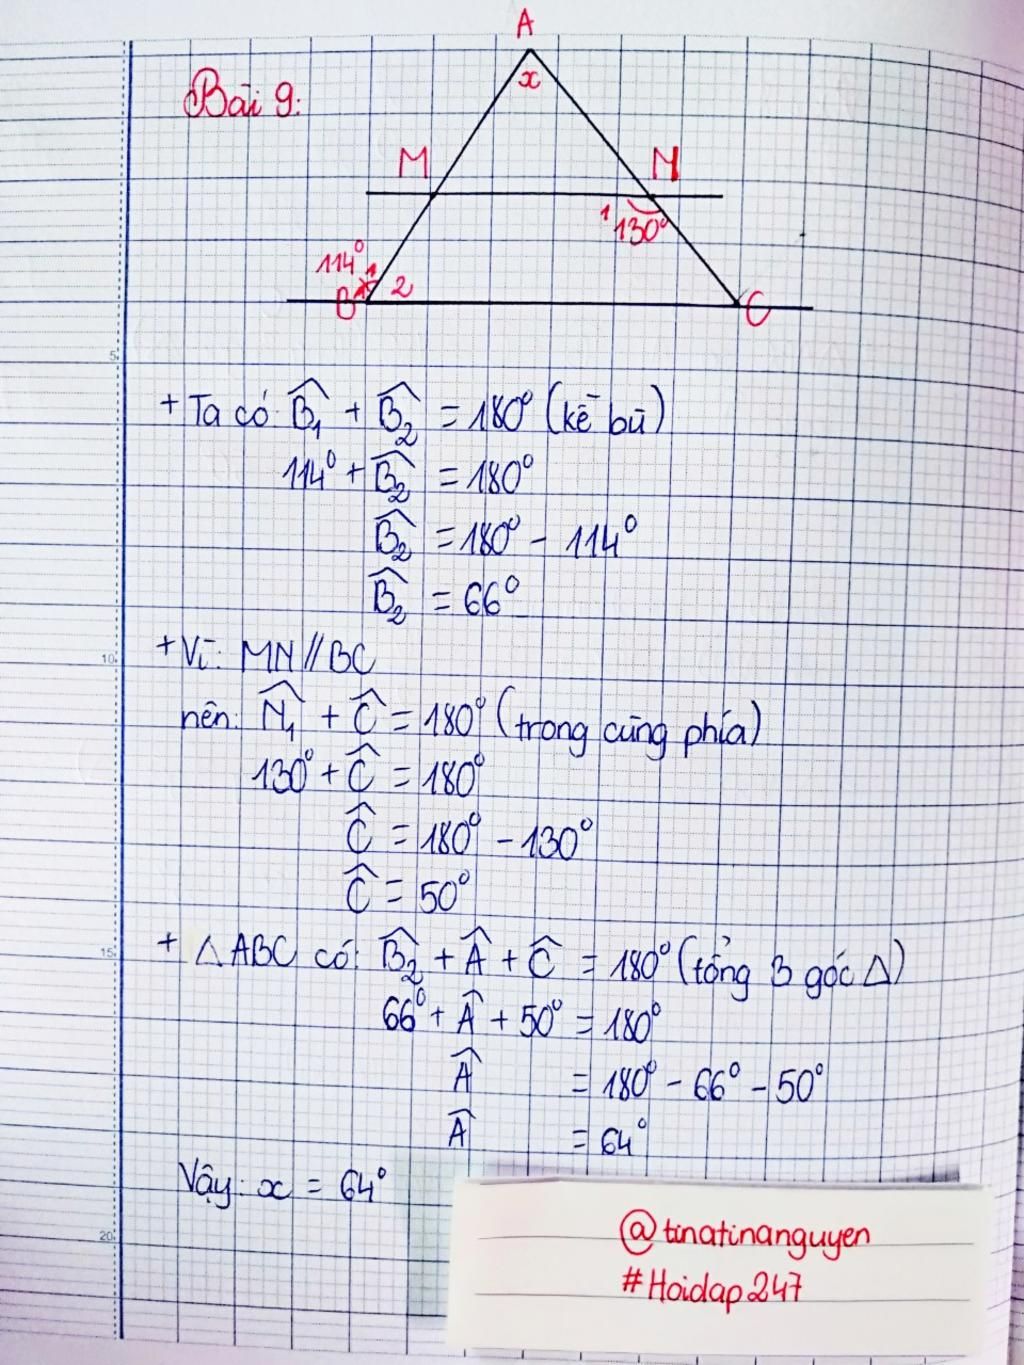 A
Bài 9:
x
M
N
1
130°
114°
1
2
B
C
5
+ Ta có B̂₁ + B̂₂ = 180° (kề bù)
114° + B̂₂ = 180°
B̂₂ = 180° - 114°
B̂₂ = 66°
+ Vì: MN // BC
10
nên: N̂₁ + Ĉ = 180° (trong cùng phía)
130° + Ĉ = 180°
Ĉ = 180° - 130°
Ĉ = 50°
+ △ABC có: B̂₂ + Â + Ĉ = 180° (tổng 3 góc △)
15
66° + Â + 50° = 180°
Â = 180° - 66° - 50°
Â = 64°
Vậy: x = 64°
20
@tinatinanguyen
#Hoidap247